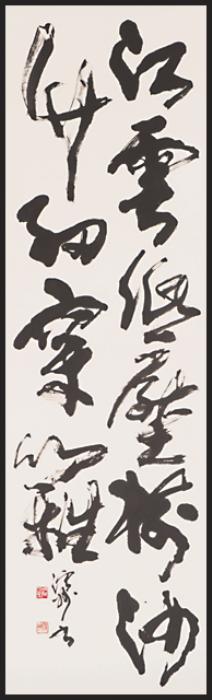 江雲低壓樹沙
竹細穿籬